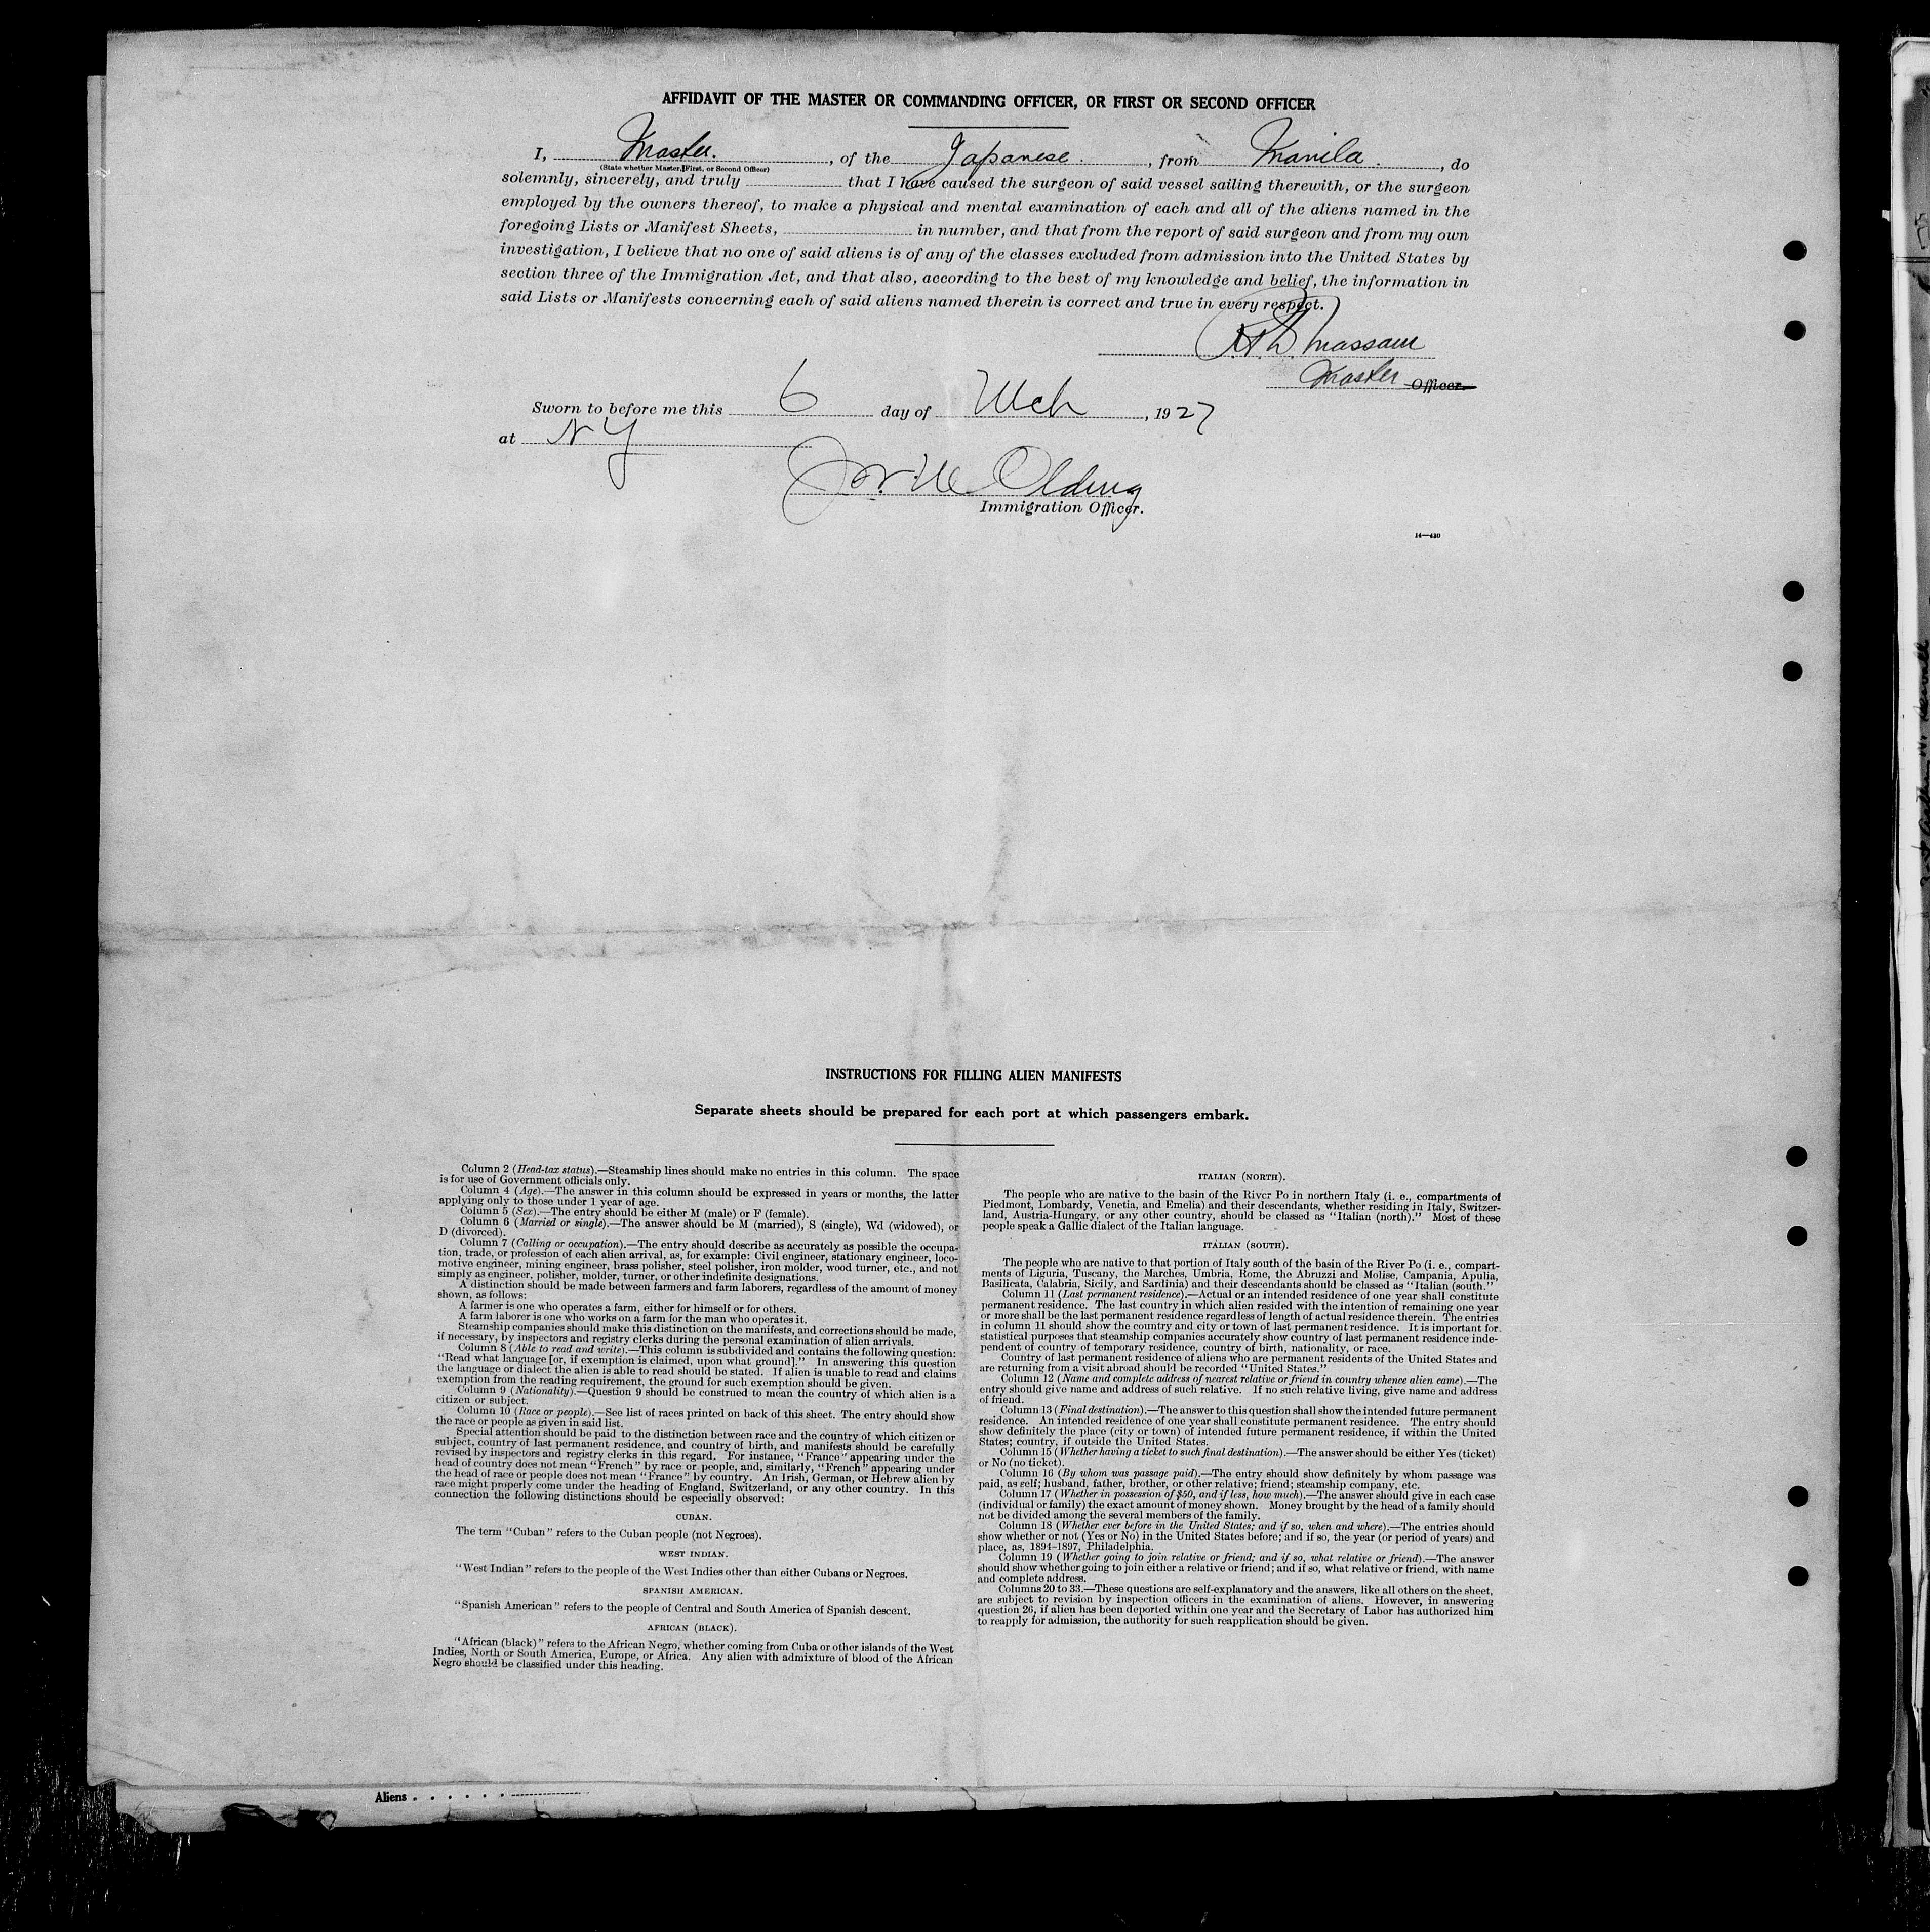 AFFIDAVIT OF THE MASTER OR COMMANDING OFFICER, OR FIRST OR SECOND OFFICER
I, Master. , of the Japanese. , from Manila. , do
(State whether Master, First, or Second Officer)
solemnly, sincerely, and truly that I have caused the surgeon of said vessel sailing therewith, or the surgeon
employed by the owners thereof, to make a physical and mental examination of each and all of the aliens named in the
foregoing Lists or Manifest Sheets, in number, and that from the report of said surgeon and from my own
investigation, I believe that no one of said aliens is of any of the classes excluded from admission into the United States by
section three of the Immigration Act, and that also, according to the best of my knowledge and belief, the information in
said Lists or Manifests concerning each of said aliens named therein is correct and true in every respect.
Massam
Master Officer.
Sworn to before me this 6 day of Mch , 1927
at NY
Olding
Immigration Officer.
14—430
INSTRUCTIONS FOR FILLING ALIEN MANIFESTS
Separate sheets should be prepared for each port at which passengers embark.
Column 2 (Head-tax status).—Steamship lines should make no entries in this column. The space
is for use of Government officials only.
Column 4 (Age).—The answer in this column should be expressed in years or months, the latter
applying only to those under 1 year of age.
Column 5 (Sex).—The entry should be either M (male) or F (female).
Column 6 (Married or single).—The answer should be M (married), S (single), Wd (widowed), or
D (divorced).
Column 7 (Calling or occupation).—The entry should describe as accurately as possible the occupa-
tion, trade, or profession of each alien arrival, as, for example: Civil engineer, stationary engineer, loco-
motive engineer, mining engineer, brass polisher, steel polisher, iron molder, wood turner, etc., and not
simply as engineer, polisher, molder, turner, or other indefinite designations.
A distinction should be made between farmers and farm laborers, regardless of the amount of money
shown, as follows:
A farmer is one who operates a farm, either for himself or for others.
A farm laborer is one who works on a farm for the man who operates it.
Steamship companies should make this distinction on the manifests, and corrections should be made,
if necessary, by inspectors and registry clerks during the personal examination of alien arrivals.
Column 8 (Able to read and write).—This column is subdivided and contains the following question:
"Read what language [or, if exemption is claimed, upon what ground]." In answering this question
the language or dialect the alien is able to read should be stated. If alien is unable to read and claims
exemption from the reading requirement, the ground for such exemption should be given.
Column 9 (Nationality).—Question 9 should be construed to mean the country of which alien is a
citizen or subject.
Column 10 (Race or people).—See list of races printed on back of this sheet. The entry should show
the race or people as given in said list.
Special attention should be paid to the distinction between race and the country of which citizen or
subject, country of last permanent residence, and country of birth, and manifests should be carefully
revised by inspectors and registry clerks in this regard. For instance, "France" appearing under the
head of country does not mean "French" by race or people, and, similarly, "French" appearing under
the head of race or people does not mean "France" by country. An Irish, German, or Hebrew alien by
race might properly come under the heading of England, Switzerland, or any other country. In this
connection the following distinctions should be especially observed:
CUBAN.
The term "Cuban" refers to the Cuban people (not Negroes).
WEST INDIAN.
"West Indian" refers to the people of the West Indies other than either Cubans or Negroes.
SPANISH AMERICAN.
"Spanish American" refers to the people of Central and South America of Spanish descent.
AFRICAN (BLACK).
"African (black)" refers to the African Negro, whether coming from Cuba or other islands of the West
Indies, North or South America, Europe, or Africa. Any alien with admixture of blood of the African
Negro should be classified under this heading.
ITALIAN (NORTH).
The people who are native to the basin of the River Po in northern Italy (i. e., compartments of
Piedmont, Lombardy, Venetia, and Emelia) and their descendants, whether residing in Italy, Switzer-
land, Austria-Hungary, or any other country, should be classed as "Italian (north)." Most of these
people speak a Gallic dialect of the Italian language.
ITALIAN (SOUTH).
The people who are native to that portion of Italy south of the basin of the River Po (i. e., compart-
ments of Liguria, Tuscany, the Marches, Umbria, Rome, the Abruzzi and Molise, Campania, Apulia,
Basilicata, Calabria, Sicily, and Sardinia) and their descendants should be classed as "Italian (south."
Column 11 (Last permanent residence).—Actual or an intended residence of one year shall constitute
permanent residence. The last country in which alien resided with the intention of remaining one year
or more shall be the last permanent residence regardless of length of actual residence therein. The entries
in column 11 should show the country and city or town of last permanent residence. It is important for
statistical purposes that steamship companies accurately show country of last permanent residence inde-
pendent of country of temporary residence, country of birth, nationality, or race.
Country of last permanent residence of aliens who are permanent residents of the United States and
are returning from a visit abroad should be recorded "United States."
Column 12 (Name and complete address of nearest relative or friend in country whence alien came).—The
entry should give name and address of such relative. If no such relative living, give name and address
of friend.
Column 13 (Final destination).—The answer to this question shall show the intended future permanent
residence. An intended residence of one year shall constitute permanent residence. The entry should
show definitely the place (city or town) of intended future permanent residence, if within the United
States; country, if outside the United States.
Column 15 (Whether having a ticket to such final destination).—The answer should be either Yes (ticket)
or No (no ticket).
Column 16 (By whom was passage paid).—The entry should show definitely by whom passage was
paid, as self; husband, father, brother, or other relative; friend; steamship company, etc.
Column 17 (Whether in possession of $50, and if less, how much).—The answer should give in each case
(individual or family) the exact amount of money shown. Money brought by the head of a family should
not be divided among the several members of the family.
Column 18 (Whether ever before in the United States; and if so, when and where).—The entries should
show whether or not (Yes or No) in the United States before; and if so, the year (or period of years) and
place, as, 1894-1897, Philadelphia.
Column 19 (Whether going to join relative or friend; and if so, what relative or friend).—The answer
should show whether going to join either a relative or friend; and if so, what relative or friend, with name
and complete address.
Columns 20 to 33.—These questions are self-explanatory and the answers, like all others on the sheet,
are subject to revision by inspection officers in the examination of aliens. However, in answering
question 26, if alien has been deported within one year and the Secretary of Labor has authorized him
to reapply for admission, the authority for such reapplication should be given.
Aliens . . . . . .